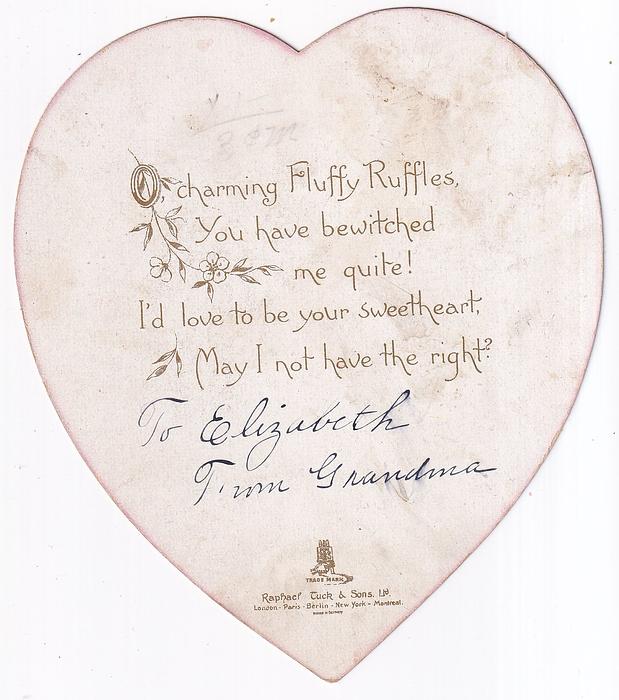 O, charming Fluffy Ruffles,
You have bewitched
me quite!
I'd love to be your sweetheart,
May I not have the right?
To Elizabeth
From Grandma
TRADE MARK
Raphael Tuck & Sons. Ltd.
London - Paris - Berlin - New York - Montreal.